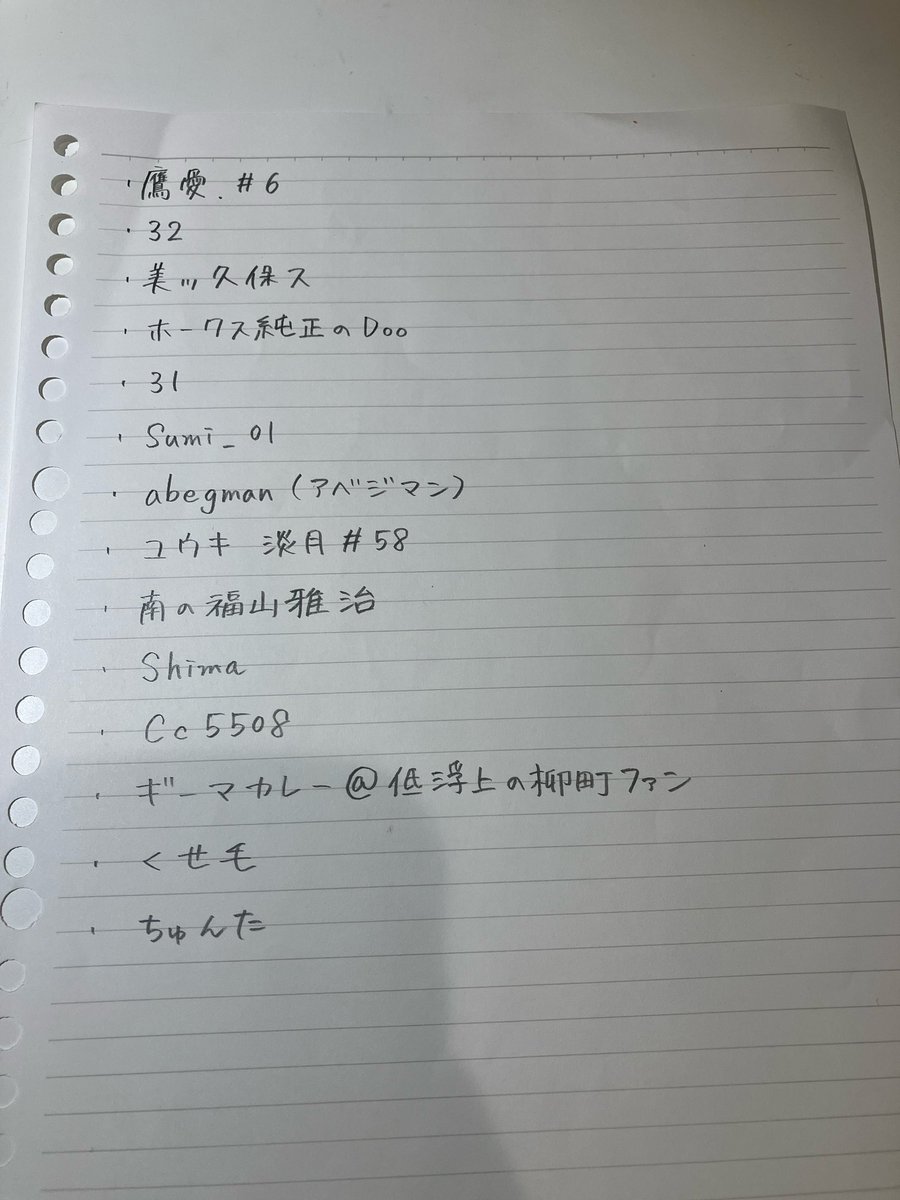 ・鷹愛.#6
・32
・美ッ久保ス
・ホークス純正のDoo
・31
・Sumi_01
・abegman(アベジマン)
・ユウキ 淡月#58
・南の福山雅治
・Shima
・Cc5508
・ギーマカレー@低浮上の柳町ファン
・くせ毛
・ちゅんた